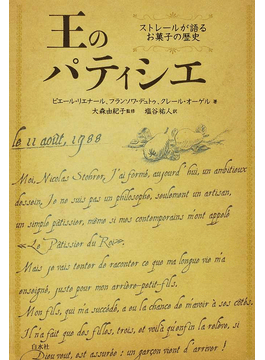 王の
パティシエ
ストレールが語る
お菓子の歴史
ピエール・リエナール、フランソワ・デュトゥ、クレール・オーゲル 著
大森由紀子 監修 塩谷祐人 訳
le 11 août, 1788
Moi, Nicolas Stohrer, j'ai formé, aujourd'hui, un ambitieux
dessein. Je ne suis pas un philosophe, seulement un artisan,
un simple pâtissier, même si mes contemporains m'ont appelé
«Le Pâtissier du Roi».
Mais je vais tenter de raconter ce que ma longue vie m'a
enseigné, juste pour mon arrière-petit-fils.
Mon fils, qui m'a succédé, a eu la chance de m'avoir à ses côtés.
Il n'a fait que des filles, trois, et voilà qu'enfin la relève, si
Dieu veut, est assurée : un garçon vient d'arriver !
白水社